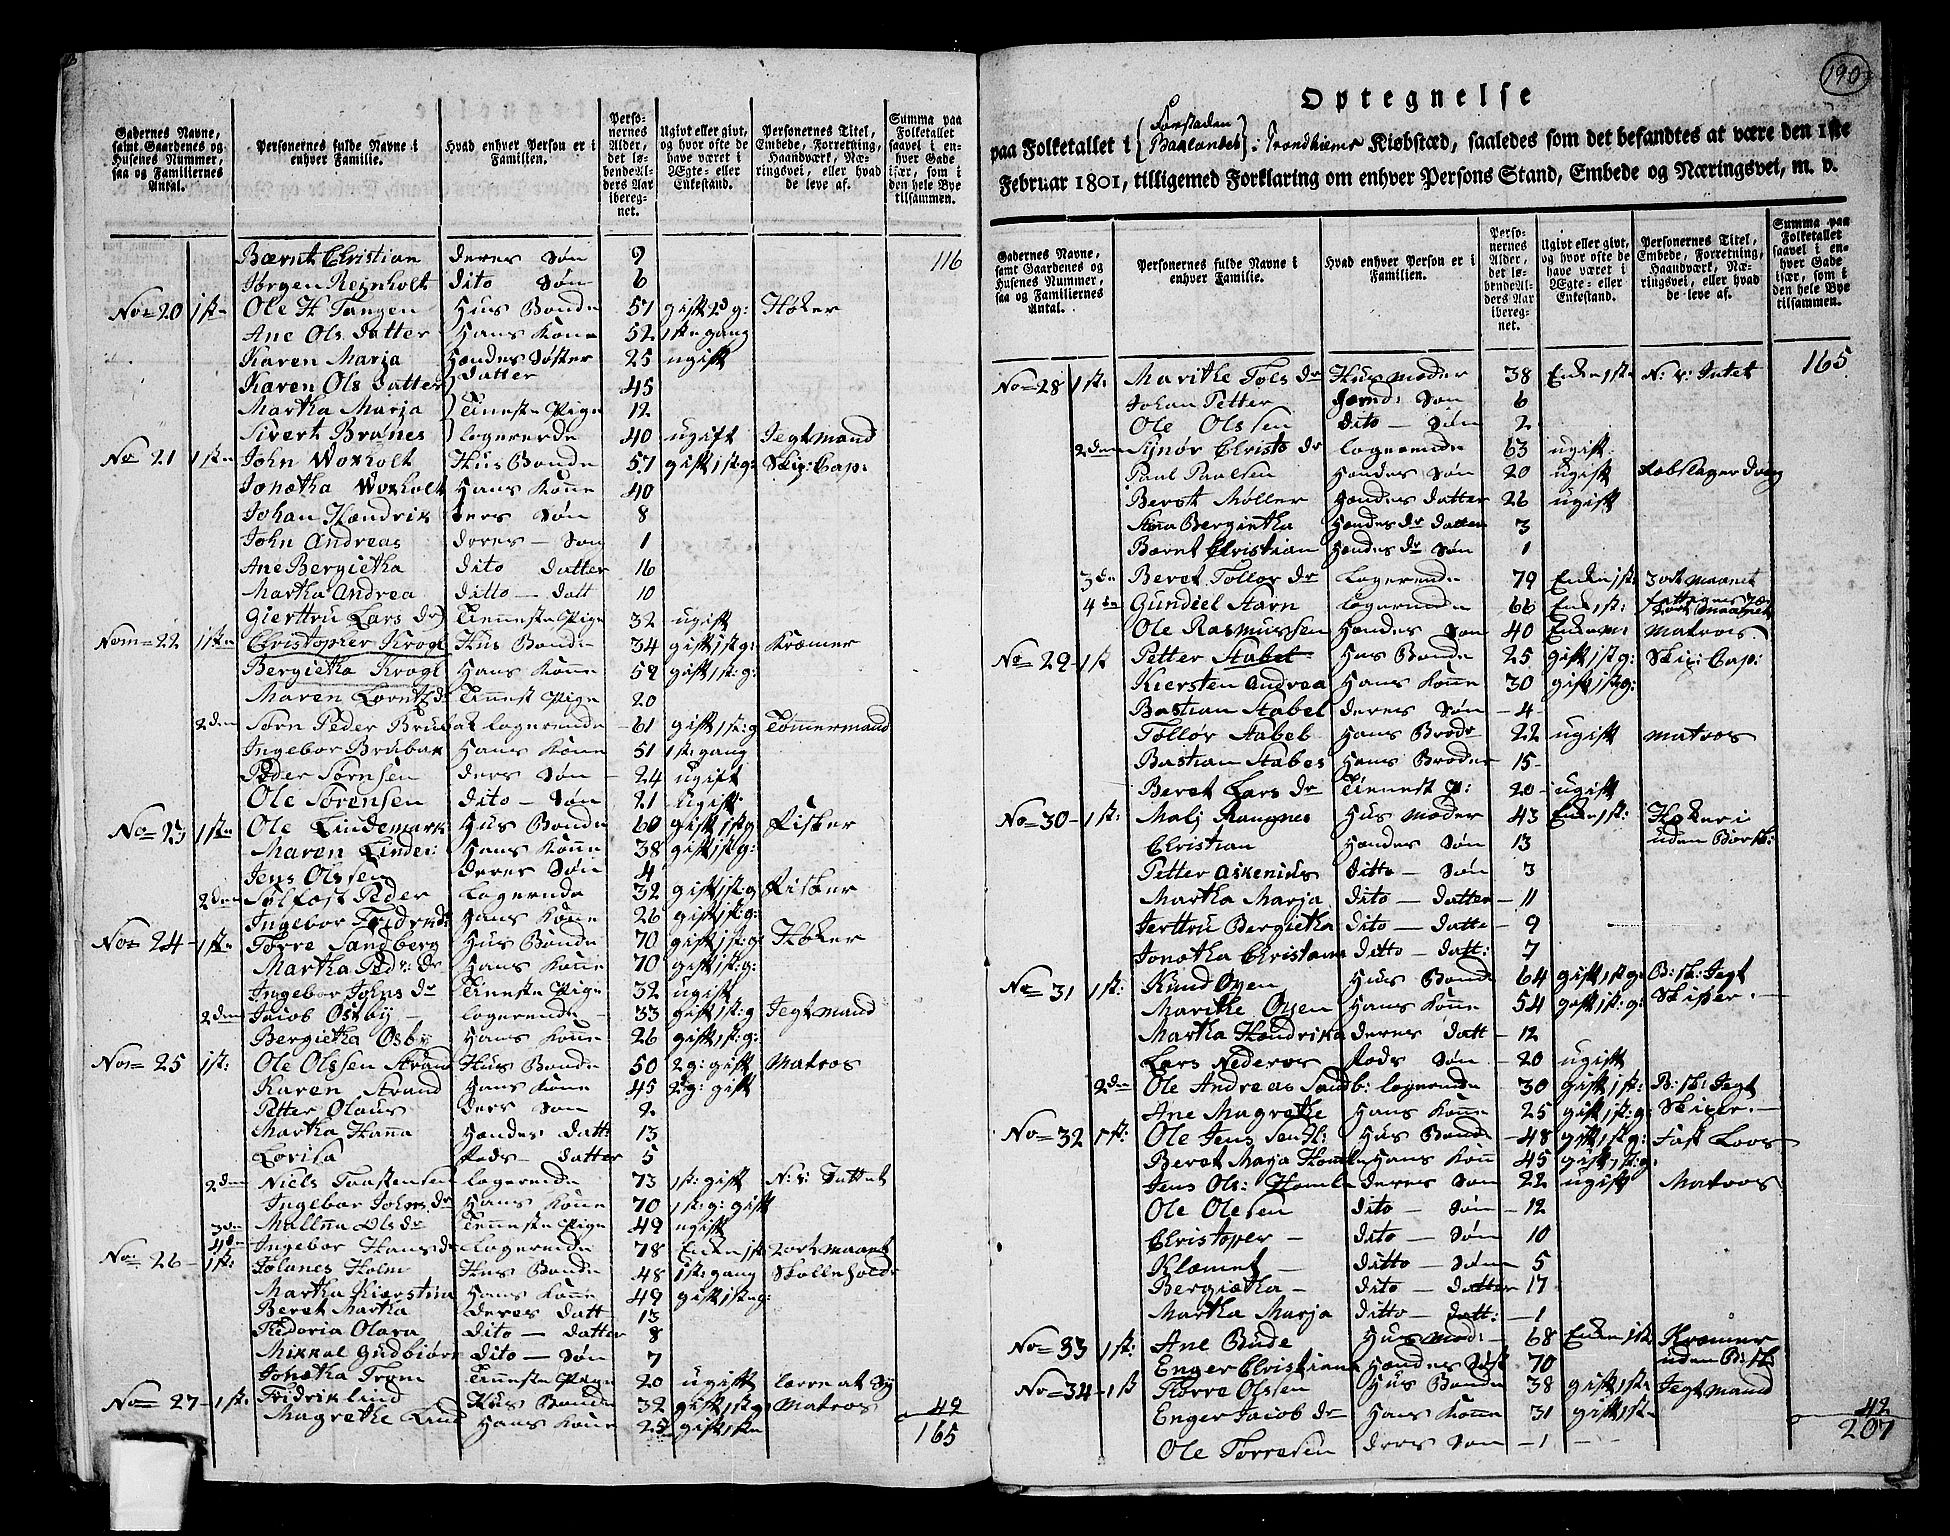 Gadernes Navne, samt Gaardenes og Husenes Nummer, saa og Familiernes Antal.
Personernes fulde Navne i enhver Familie.
Hvad enhver Person er i Familien.
Personernes Alder, det løbende Alders Aar iberegnet.
Ugivt eller givt, og hvor ofte de have været i Ægte- eller Enkestand.
Personernes Titel, Embede, Forretning, Haandværk, Næringsvei, eller hvad de leve af.
Summa paa Folketallet saavel i enhver Gade især, som i den hele Bye tilsammen.
Bærnt Christian deres Søn 9 116
Jørgen Reinholt dito Søn 6
No= 20 1ste Ole H Tangen Hus Bonde 57 gift 2d g: Høker
Ane Ols datter Hans Kone 52 1ste gang
Karen Marja Hændes Søster datter 25 ugift
Karen Ols datter 45
Martha Marja Tieneste Pige 12
Sivert Brønes logerende 40 ugift Jegtmand
No 21 1ste John Woxholt Hus Bonde 57 gift 1st g: Skip: Cap:
Jonetha Woxholt Hans Kone 40
Johan Hendrik deres Søn 8
John Andreas deres - Søn 1
Ane Bergietha dito datter 16
Martha Andrea ditto - datt 10
Gierttru Lars dr Tieneste Pige 32 ugift
Nom= 22 1ste Christopher Krogl Hus Bonde 34 gift 1st g: Kræmer
Bergietha Krogl Hans Kone 59 gift 1st: g:
Maren Lorntz dr Tienest Pige 20
2den Sørn Peder Brubak logerende 61 gift 1st: g Tømermand
Ingebor Brubak Hans Kone 51 1st: gang
Peder Sørnsen deres Søn 24 ugift
Ole Sørensen dito - Søn 21 ugift
No= 23 1ste Ole Lindemark Hus Bonde 60 gift 1st g Fisker
Maren Linder: Hans Kone 38 gift 1st g:
Jens Olssen deres Søn 4
2den Solfost Peder logerende 32 gift 1st: g Fisker
Ingebor Fridrkd: Hans Kone 26 gift 1st: g:
No= 24 1ste Torre Sandberg Hus Bonde 70 gift 1st: g Høker
Martha Pedr: dr Hans Kone 70 gift 1st: g:
Ingebor Johns dr Tieneste Pige 32 ugift
2den Jacob Østby logerende 33 gift 1st: g Jegtmand
Bergietha Osby Hans Kone 26 gift 1st: g:
No= 25 1st: Ole Olssen Strand Hus Bonde 50 2g: gift Matros
Karen Strand Hans Kone 45 2g: gift
Petter Olaus deres Søn 2
Martha Hanna Hændes datt: 13
Lovisa Pods - datter 5
2den Niels Torstensen logerende 73 1st: gift N: v: Intet
Ingebor Johns dr Hans Kone 70 1st: g: gift
3den Mallna Ols dr Tieneste Pige 49 ugift
4den Ingebor Hans dr logerende 78 Enke 1st 2ort maanet
No= 26 1st: Johanes Holm Hus Bonde 48 1st: gang Skolleholder
Martha Kierstina Hans Kone 49 gift 1ste g:
Beret Martha deres datt 13
Fedoria Olava dito - datter 8
Mikkal Gudbiør dito - Søn 7
Jonetha Trom Tieneste Pige 20 ugift lærre at Sy
No= 27 1st: Fridrik lind Hus Bonde 32 gift 1st g Matros
Magrethe Lind Hans Kone 25 gift 1ste
49
165
190
Optegnelse
paa Folketallet i {Forstaden Baklandet} i Trondhiems Kiøbstæd, saaledes som det befandtes at være den 1ste
Februar 1801, tilligemed Forklaring om enhver Persons Stand, Embede og Næringsvei, m. v.
Gadernes Navne, samt Gaardenes og Husenes Nummer, saa og Familiernes Antal.
Personernes fulde Navne i enhver Familie.
Hvad enhver Person er i Familien.
Personernes Alder, det løbende Alders Aar iberegnet.
Ugivt eller givt, og hvor ofte de have været i Ægte- eller Enkestand.
Personernes Titel, Embede, Forretning, Haandværk, Næringsvei, eller hvad de leve af.
Summa paa Folketallet saavel i enhver Gade især, som i den hele Bye tilsammen.
No= 28 1st: Marithe Tols dr Hus Moder 38 Enke 1ste N: v: Intet 165
Johan Petter Søn 6
Ole Olssen dito - Søn 2
2den Synør Christo dr logerende 63 ugift
Paul Paulsen Hændes Søn 20 ugift Rebslager dreng
Beret Møller Hændes datter 26 ugift
Anna Bergietha Hændes dr datter 3
Bærnt Christian Hændes dr Søn 1
3de Beret Tollor dr logerende 79 Enke 1st: 3 ort maanet
4de Gundiel Starn logerende 66 Enke 1st:
Ole Rasmussen Hændes Søn 40 Enkem: Matros
No= 29 1st Petter Stabel Hus Bonde 25 gift 1st g: Skip: Cap:
Kiersten Andrea Hans Kone 30 gift 1st g:
Bastian Stabel deres Søn 4
Tollør Stabel Hans Brodr 22 ugift Matros
Bastian Stabel Hans Broder 15
Beret Lars dr Tienest P: 20 ugift
No= 30 1st: Malj Raugnes Hus Moder 43 Enke 1st: Høkeri uden Borsk:
Christian Hændes Søn 13
Petter Askenids ditto - Søn 3
Martha Marja dito - datter 11
Jerttru Bergietha dito - datter 9
Jonetha Christiana ditto - datt: 7
No= 31 1st: Knud Oyen Hus Bonde 64 gift 1st g: B: sk: Jegt Skipper
Marithe Oyen Hans Kone 54 gift 1st: g:
Martha Hendrika deres datt 12
Lars Nederos Pods Søn 20 ugift
2den Ole Andreas Sandb: logerende 30 gift 1st: B: sk: Jegt Skiper
Ane Magrethe Hans Kone 25 gift 1st: g
No= 32 1st: Ole Jens Sen H: Hus Bonde 48 gift 1st g: Fast Loos
Beret Marja Hamle Hans Kone 45 gift 1st: g:
Jens Ols: Hamle deres Søn 22 ugift Matros
Ole Olesen dito - Søn 12
Christoper - dito - Søn 10
Klemet - ditto - Søn 5
Bergietha - dito - datter 17
Martha Marja ditto - datt: 1
No= 33 1st: Ane Bude Hus Mod: 68 Enke 1ste Kræmer uden B: sk
Enger Christiana Hændes Søst 70
No= 34 1st Torre Olssen Hus Bonde 38 gift 1ste Jegtmand
Enger Jacob dr Hans Kone 31 gift 1ste
Ole Torresen deres Søn 1
42
207